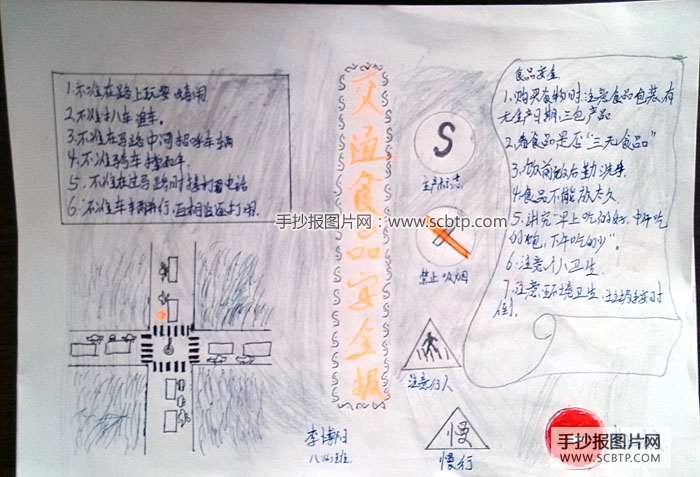 1.不准在路上玩耍嘻闹.
2.不准扒车追车.
3.不准在马路中间招呼车辆
4.不准骑车撑雨伞.
5.不准在过马路时接打电话
6.不准车辆并行,互相追逐打闹.
交通食品安全报
S
禁止吸烟
注意行人
慢
慢行
李博阳
食品安全
1.购买食物时,注意食品包装,有
无生产日期,三包产品
2.看食品是否"三无食品"
3.饭前饭后勤洗手
4.食品不能放太久
5.讲究"早上吃的好,中午吃
的饱,下午吃的少".
6.注意个人卫生.
7.注意环境卫生,垃圾要按时
倒.
手抄报图片网:www.scbtp.com
手抄报图片网
WWW.SCBTP.COM